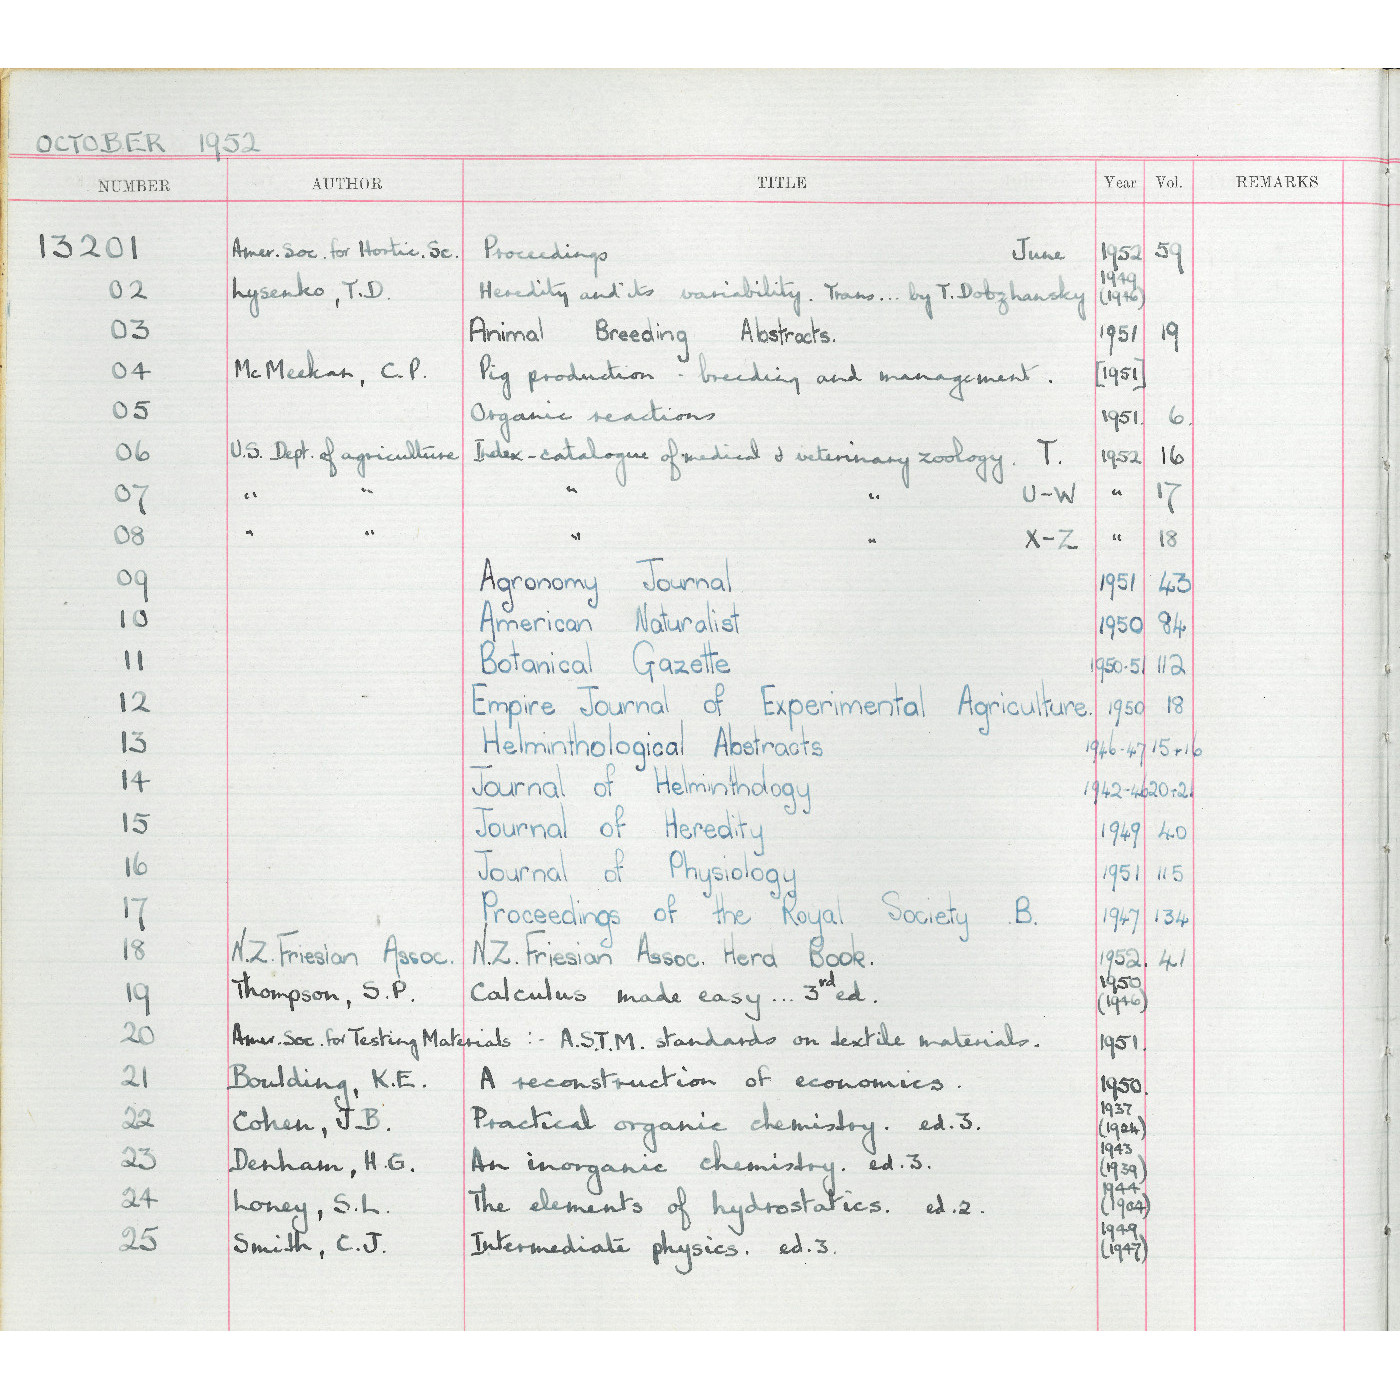 OCTOBER 1952
NUMBER AUTHOR TITLE Year Vol. REMARKS
13201 Amer. Soc. for Hortic. Sc. Proceedings June 1952 59
02 Lysenko, T.D. Heredity and its variability. Trans... by T. Dobzhansky 1949 (1946)
03 Animal Breeding Abstracts. 1951 19
04 McMeekan, C.P. Pig production - breeding and management. [1951]
05 Organic reactions 1951. 6.
06 U.S. Dept. of agriculture Index-catalogue of medical & veterinary zoology. T. 1952 16
07 " " " " U-W " 17
08 " " " " X-Z " 18
09 Agronomy Journal 1951 43
10 American Naturalist 1950 84
11 Botanical Gazette 1950-51 112
12 Empire Journal of Experimental Agriculture. 1950 18
13 Helminthological Abstracts 1946-47 15+16
14 Journal of Helminthology 1942-46 20+21
15 Journal of Heredity 1949 40
16 Journal of Physiology 1951 115
17 Proceedings of the Royal Society B. 1947 134
18 N.Z. Friesian Assoc. N.Z. Friesian Assoc. Herd Book. 1952. 41
19 Thompson, S.P. Calculus made easy... 3rd ed. 1950 (1946)
20 Amer. Soc. for Testing Materials :- A.S.T.M. standards on textile materials. 1951.
21 Boulding, K.E. A reconstruction of economics. 1950.
22 Cohen, J.B. Practical organic chemistry. ed. 3. 1937 (1924)
23 Denham, H.G. An inorganic chemistry. ed. 3. 1943 (1939)
24 Loney, S.L. The elements of hydrostatics. ed. 2. 1944 (1904)
25 Smith, C.J. Intermediate physics. ed. 3. 1949 (1947)